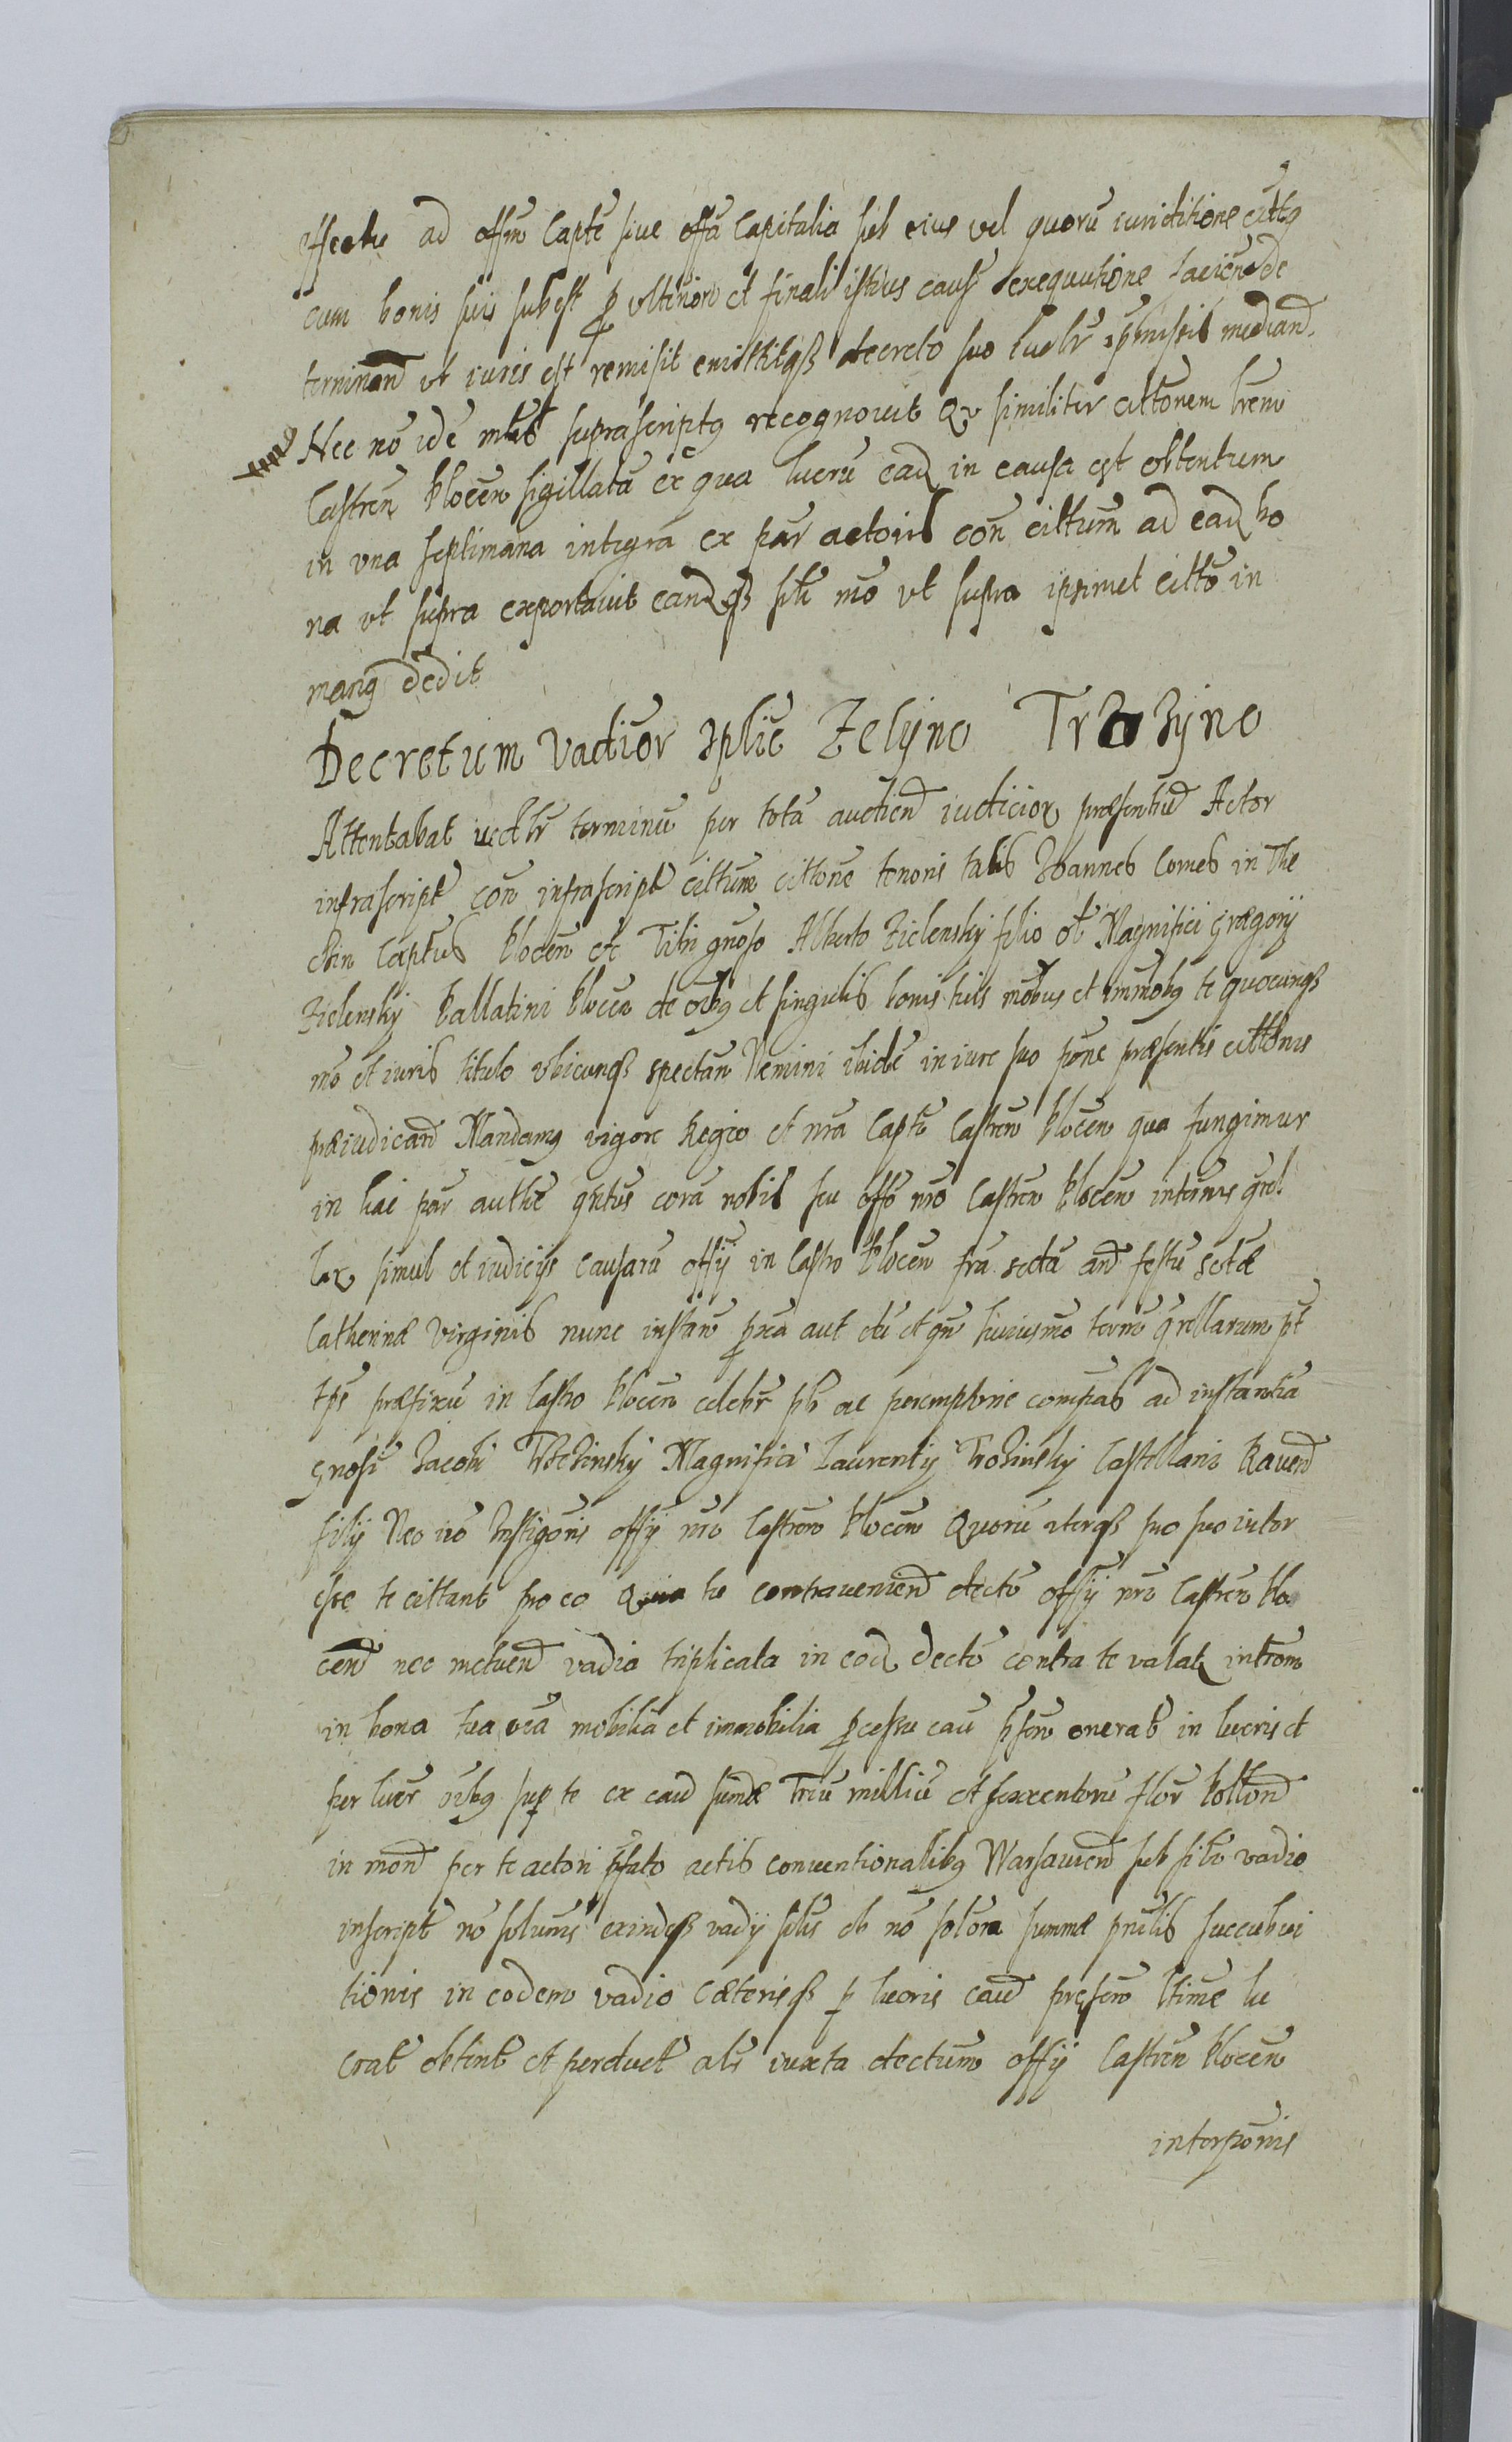 effectu ad offm Capte siue offa Capitalia sub eius vel quorū iuriditione cittq
cum bonis suis subest p vlteriori et finali istius cause exequutione faciende
terminand vt iuris est remisit emisitqß decreto suo mediand
Nec nō idē mtlis suprascriptq recognouit Qv similiter cittonem lrem
Castren plocen sigillatā ex qua lucrū ead in causa est obtentum
in vna septimana integra ex par actoris con cittum ad ead bo
na vt supra exportauit eandqß sili mō vt supra ipsimet citto in
manq dedit
Decretum Vadior tplic Zelyno Trzozyno
Attentabat iudlr terminū per totā audien iudicior præsentiū Actor
infrascript con infrascript cittum cittone tenoris talis Joannes Comes in The
czin Captus plocen etc Tibi gnoso Alberto Zielensky filio ol Magnifici Græegorij
Zielensky Pallatini plocen de oibq et singulis bonis tuis mobus et immobq te quocunqß
mō et iuris titulo vbicunqß spectan Nemini ibidē in iure suo pōne præsentis cittonis
præiudicand Mandamq vigore Regio et nrā Capte Castren plocen qua fungimur
in hac par authē qtus corā nobis seu offō nrō Castren plocen in termis qrel
lar simul et iudicijs causarū offij in Castro plocen fra sectā and festū sctæ
Catherinæ virginis nunc instan pxā aut dū et qn huiusmō term qrellarum pt
tps præfixū in Castro plocen celebr pls ac peremptorie compas ad instantiā
gnosi Jacobi Trzezinsky Magnifici Laurentij Trozinsky Castellani Rauen
filij Nec nō Instigoris offij nrō Castren plocen Quorū vterqß pro suo interesse
esse te cittant pro eo Quia tu contraueniend decto offij nrō Castren plo
cen nec metuend vadia triplicata in eod decto contra te valat introm
in bona tua oiā mobilia et immobilia pcessu cau psen onerat in lucris et
per lucr oibq sup te ex caud sumæ Triū milliū et sexcentorū flor pollon
in mon per te actori pfato actis conuentionalibq Warsauien sub sili vadio
inscript nō soluis exindeqß vadij silis ob nō solōra summæ pnlis succubui
tionis in eodem vadio cæterisqß p lucris caud præsen ltime lu
crat obtent et perduct als iuxta dectum offij Castren plocen
interpōnis